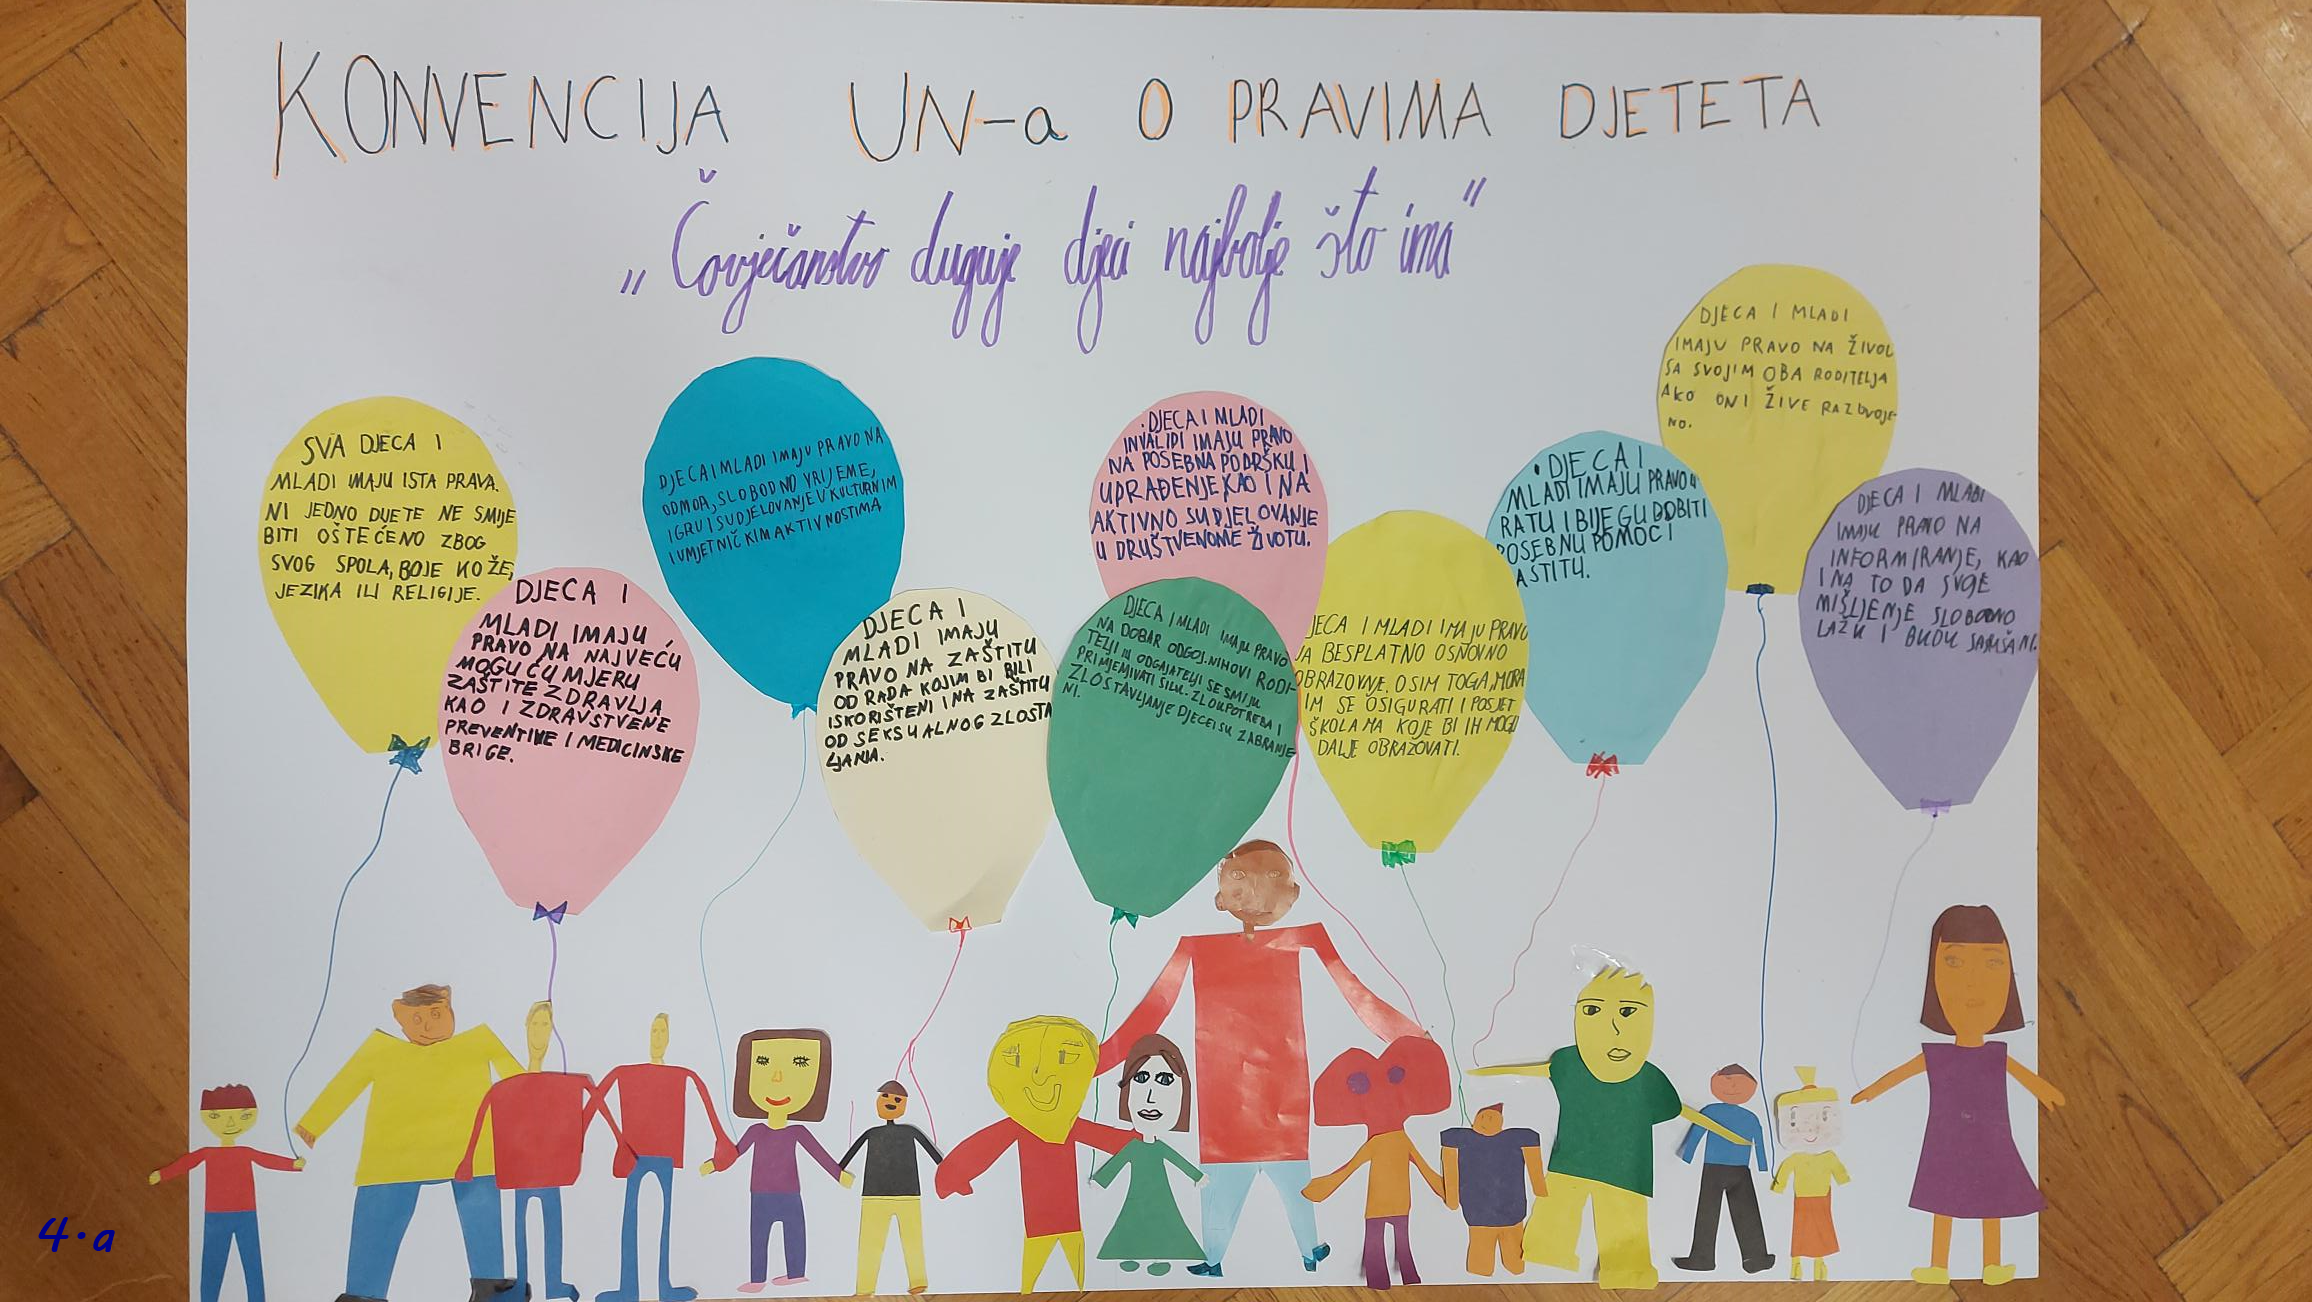 KONVENCIJA UN-a O PRAVIMA DJETETA
„Čovječanstvo duguje djeci najbolje što ima“
SVA DJECA I
MLADI IMAJU ISTA PRAVA.
NI JEDNO DIJETE NE SMIJE
BITI OŠTEĆENO ZBOG
SVOG SPOLA, BOJE KOŽE,
JEZIKA ILI RELIGIJE.
DJECA I
MLADI IMAJU
PRAVO NA NAJVEĆU
MOGUĆU MJERU
ZAŠTITE ZDRAVLJA
KAO I ZDRAVSTVENE
PREVENTIVE I MEDICINSKE
BRIGE.
DJECA I MLADI IMAJU PRAVO NA
ODMOR, SLOBODNO VRIJEME,
IGRU I SUDJELOVANJE U KULTURNIM
I UMJETNIČKIM AKTIVNOSTIMA
DJECA I
MLADI IMAJU
PRAVO NA ZAŠTITU
OD RADA KOJIM BI BILI
ISKORIŠTENI I NA ZAŠTITU
OD SEKSUALNOG ZLOSTA
LJANJA.
·DJECA I MLADI
INVALIDI IMAJU PRAVO
NA POSEBNA PODRŠKU I
UPRAĐENJE KAO I NA
AKTIVNO SUDJELOVANJE
U DRUŠTVENOME ŽIVOTU.
DJECA I MLADI IMAJU PRAVO
NA DOBAR ODGOJ. NIHOVI RODI-
TELJI ILI ODGAJATELJI SE SMIJU
PRIMJEMJIVATI SILU. ZLOUPOTREBA I
ZLOSTAVLJANJE DJECE SU ZABRANJE
NI.
JECA I MLADI IMAJU PRAVO
NA BESPLATNO OSNOVNO
OBRAZOVNJE. OSIM TOGA, MORA
IM SE OSIGURATI I POSJET
ŠKOLAMA KOJE BI IH MOGU
DALJE OBRAZOVATI.
• DJECA I
MLADI IMAJU PRAVO U
RATU I BIJEGU DOBITI
POSEBNU POMOĆ I
AŠTITU.
DJECA I MLADI
IMAJU PRAVO NA ŽIVOT
SA SVOJIM OBA RODITELJA
AKO ONI ŽIVE RAZDVOJE-
NO.
DJECA I MLADI
IMAJU PRAVO NA
INFORMIRANJE, KAO
I NA TO DA SVOJE
MIŠLJENJE SLOBODNO
LAŽU I BUDU SASLUŠANI.
4.a